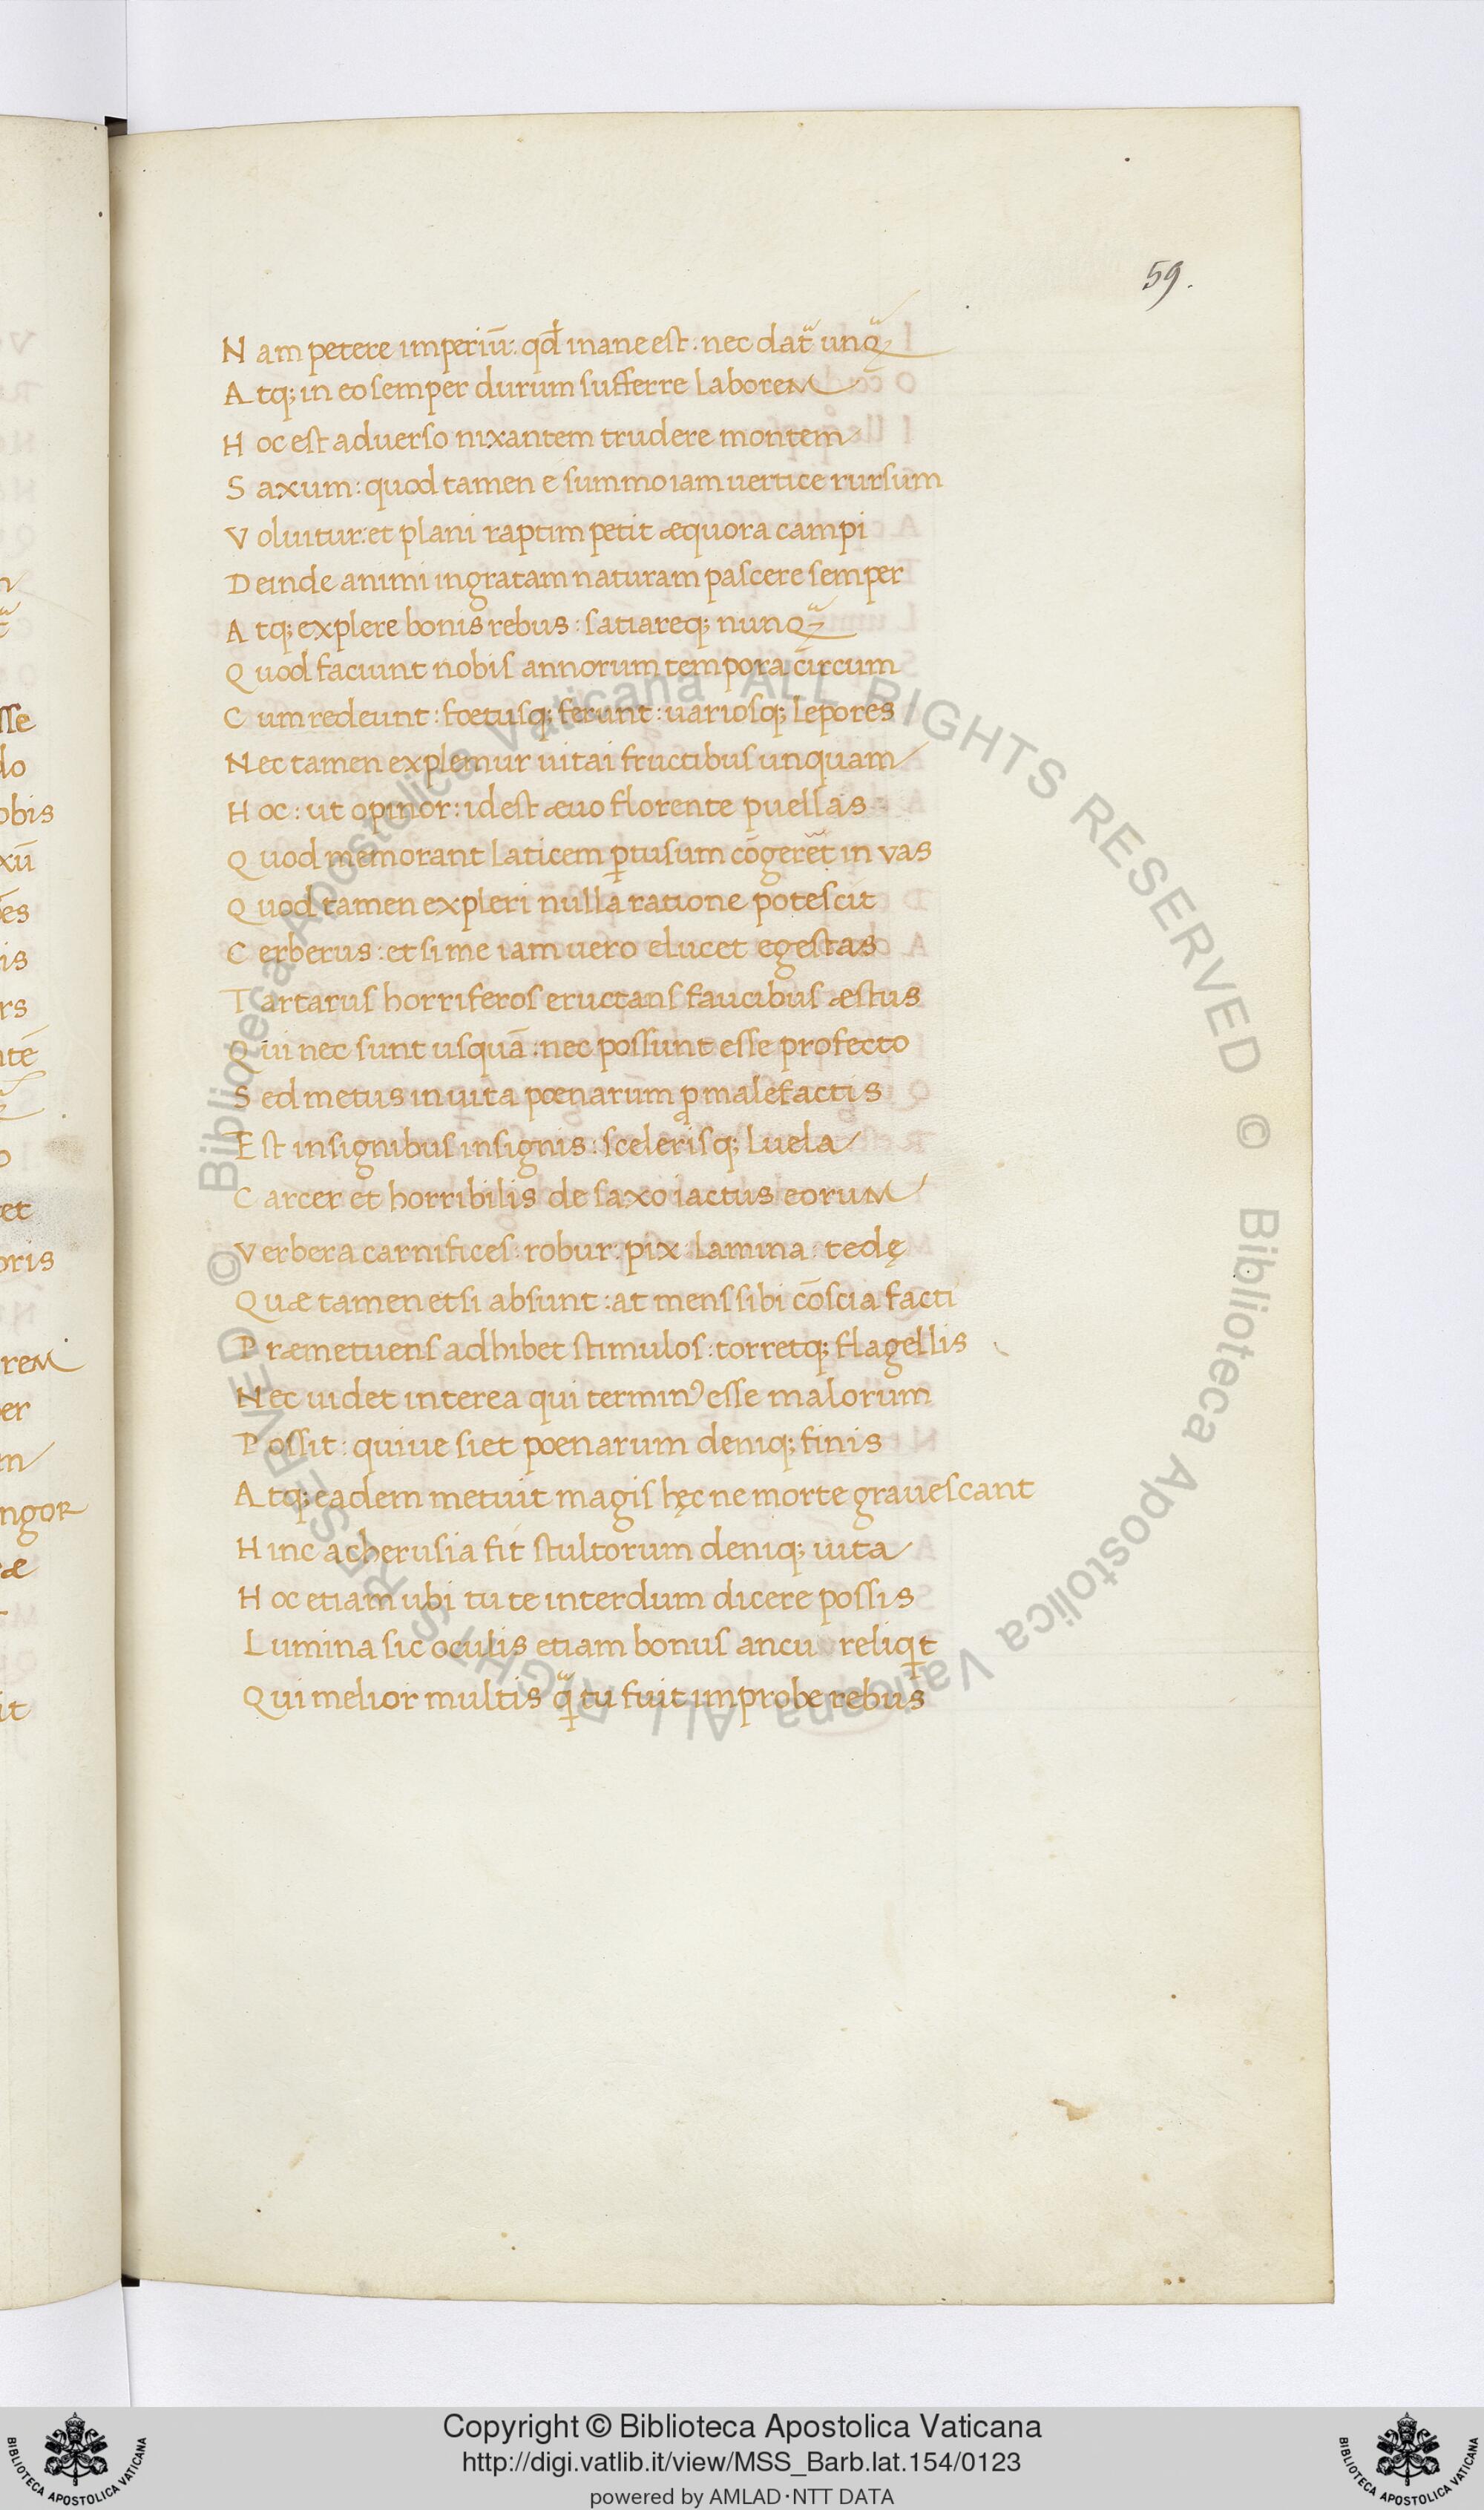 59.
N am petere imperiū: qd̄ inane est. nec dat᷑ unq̃
A tq; in eo semper durum sufferre laborem
H oc est aduerso nixantem trudere montem
S axum: quod tamen e summo iam uertice rursum
V oluitur: et plani raptim petit æquora campi
D einde animi ingratam naturam pascere semper
A tq; explere bonis rebus: satiareq; nunq̃
Q uod faciunt nobis annorum tempora circum
C um redeunt: foetusq; ferunt: uariosq; lepores
N ec tamen explemur uitai fructibus unquam
H oc: ut opinor: id est æuo florente puellas
Q uod memorant laticem ꝑtusum cōgerēt in vas
Q uod tamen expleri nulla ratione potescit
C erberus: et si me iam uero elucet egestas
T artarus horriferos eructans faucibus æstus
Q ui nec sunt usquā: nec possunt esse profecto
S ed metus in uita pœnarum ꝓ malefactis
E st insignibus insignis: scelerisq; luela
C arcer et horribilis de saxo iactus eorum
V erbera carnifices: robur: pix: lamina: tedę
Q uæ tamen etsi absunt: at mens sibi cōscia facti
P ræmetuens adhibet stimulos: torretq; flagellis
N ec uidet interea qui terminꝰ esse malorum
P ossit: quiue siet poenarum deniq; finis
A tq; eadem metuit magis hęc ne morte grauescant
H inc acherusia fit stultorum deniq; uita
H oc etiam ubi tu te interdum dicere possis
L umina sic oculis etiam bonus ancu reliqt
Q ui melior multis q̃ tu fuit improbe rebus
© Biblioteca Apostolica Vaticana ALL RIGHTS RESERVED © Biblioteca Apostolica Vaticana ALL RIGHTS RESERVED
Copyright © Biblioteca Apostolica Vaticana
http://digi.vatlib.it/view/MSS_Barb.lat.154/0123
powered by AMLAD·NTT DATA
BIBLIOTECA APOSTOLICA VATICANA
BIBLIOTECA APOSTOLICA VATICANA